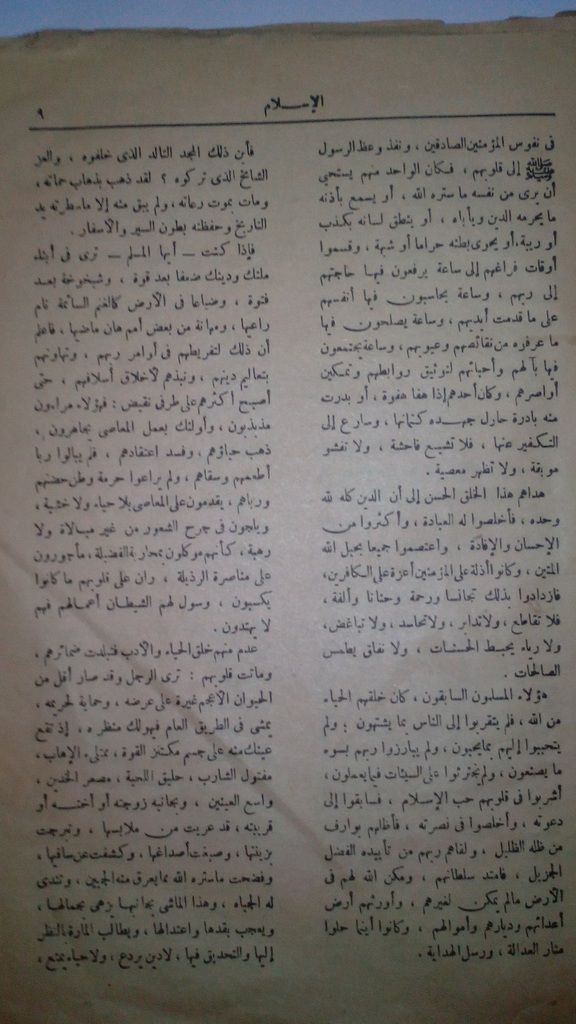 الإسلام
٩
فى نفوس المؤمنين الصادقين ، ونفذ وعظ الرسول
ﷺ إلى قلوبهم ، فكان الواحد منهم يستحى
أن يرى من نفسه ما ستره الله ، أو يسمع بأذنه
ما يحرمه الدين ويأباه ، أو ينطق لسانه بكذب
أو ريبة، أو يحوى بطنه حراما أو شبهة ، وقسموا
أوقات فراغهم إلى ساعة يرفعون فيها حاجتهم
إلى ربهم ، وساعة يحاسبون فيها أنفسهم
على ما قدمت أيديهم ، وساعة يصلحون فيها
ما عرفوه من نقائصهم وعيوبهم ، وساعة يجتمعون
فيها بآلهم وأحبائهم لتوثيق روابطهم وتمكين
أواصرهم ، وكان أحدهم إذا هفا هفوة ، أو بدرت
منه بادرة حاول جهده كتمانها ، وسارع إلى
التكفير عنها ، فلا تشيع فاحشة ، ولا تفشو
موبقة ، ولا تظهر معصية .
هداهم هذا الخلق الحسن إلى أن الدين كله لله
وحده ، فأخلصوا له العبادة ، وأكثروا من
الإحسان والإفادة ، واعتصموا جميعا بحبل الله
المتين ، وكانوا أذلة على المؤمنين أعزة على الكافرين،
فازدادوا بذلك تجانسا ورحمة وحنانا وألفة ،
فلا تقاطع ، ولا تدابر ، ولا تحاسد ، ولا تباغض،
ولا رياء يحبط الحسنات ، ولا نفاق يطمس
الصالحات .
هؤلاء المسلمون السابقون ، كان خلقهم الحياء
من الله ، فلم يتقربوا إلى الناس بما يشتهون ؛ ولم
يتحببوا إليهم بما يحبون ، ولم يبارزوا ربهم بسوء
ما يصنعون ، ولم يجترئوا على السيئات فيما يعملون،
أشربوا فى قلوبهم حب الإسلام ، فسابقوا إلى
دعوته ، وأخلصوا فى نصرته ، فأظلهم بوارف
من ظله الظليل ، ولقاهم ربهم من تأييده الفضل
الجزيل ، فامتد سلطانهم ، ومكن الله لهم فى
الأرض مالم يمكن لغيرهم ، وأورثهم أرض
أعدائهم وديارهم وأموالهم ، وكانوا أينما حلوا
منار العدالة ، ورسل الهداية .
فأين ذلك المجد التالد الذى خلفوه ، والعز
الشامخ الذى تركوه ؟ لقد ذهب بذهاب حماته ،
ومات بموت رعاته ، ولم يبق منه إلا ما سطرته يد
التاريخ وحفظته بطون السير والأسفار .
فإذا كنت – أيها المسلم – ترى فى أبناء
ملتك ودينك ضعفا بعد قوة ، وشيخوخة بعد
فتوة ، وضياعا فى الأرض كالغنم السائمة نام
راعيها ، ومهانة من بعض أمم هان ماضيها ، فاعلم
أن ذلك لتفريطهم فى أوامر ربهم ، وتهاونهم
بتعاليم دينهم ، ونبذهم لأخلاق أسلافهم ، حتى
أصبح أكثرهم على طرفى نقيض : فهؤلاء مراءون
مذبذبون ، وأولئك بعمل المعاصى يجاهرون ،
ذهب حياؤهم ، وفسد اعتقادهم ، فلم يبالوا ربا
أطعمهم وسقاهم ، ولم يراعوا حرمة وطن حضنهم
ورباهم ، يقدمون على المعاصى بلا حياء ولا خشية ،
ويلجون فى جرح الشعور من غير مبالاة ولا
رهبة ، كأنهم موكلون بمحاربة الفضيلة ، مأجورون
على مناصرة الرذيلة ، ران على قلوبهم ما كانوا
يكسبون ، وسول لهم الشيطان أعمالهم فهم
لا يهتدون .
عدم منهم خلق الحياء والأدب فتبلدت ضمائرهم ،
وماتت قلوبهم : ترى الرجل وقد صار أقل من
الحيوان الأعجم غيرة على عرضه ، وحماية لحريمه ،
يمشى فى الطريق العام فيهولك منظره ، إذ تقع
عينك منه على جسم مكتنز القوة ، ممتلىء الإهاب ،
مفتول الشارب ، حليق اللحية ، مصعر الخدين ،
واسع العينين ، وبجانبه زوجته أو أخته أو
قريبته ، قد عريت من ملابسها ، وتبرجت
بزينتها ، وصبغت أصداغها ، وكشفت عن ساقيها ،
وفضحت ما ستره الله مما يعرق منه الجبين ، وتندى
له الجباه ، وهذا الماشى بجانبها يزهى بجمالها ،
ويعجب بقدها واعتدالها ، ويطالب المارة بالنظر
إليها والتحديق فيها ، لا دين يردع ، ولا حياء يمنع ،